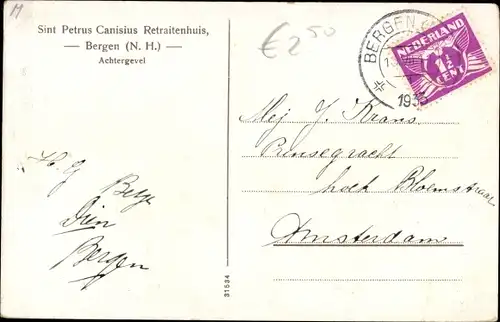 M
Sint Petrus Canisius Retraitenhuis,
— Bergen (N. H.) —
Achtergevel
€ 2 50
BERGEN
193
NEDERLAND
1½
CENT
Mej J. Krans
Prinsegracht
hoek Bloemstraat
Amsterdam
H. G
Betsy
Dien
Bergen
31534